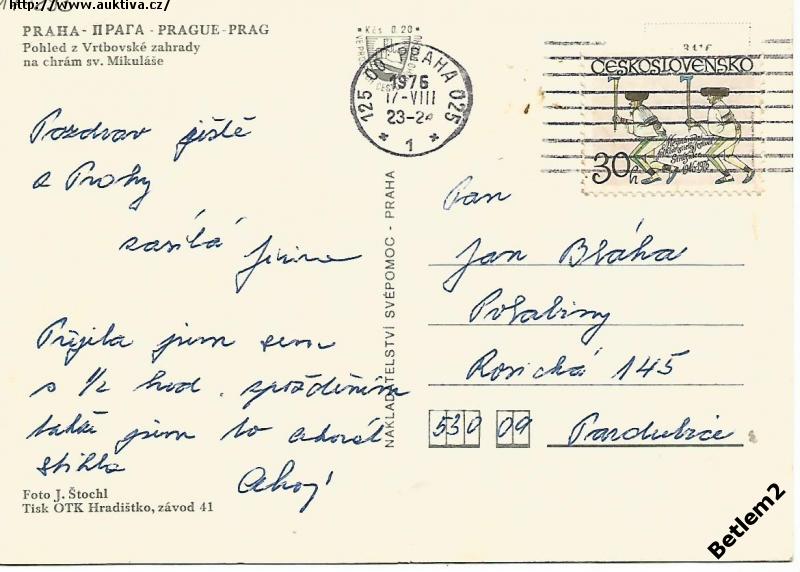 http://www.auktiva.cz/
PRAHA - ПРАГА - PRAGUE - PRAG
Pohled z Vrtbovské zahrady
na chrám sv. Mikuláše
Kčs 0,20
125 00 PRAHA 025
1976
17-VIII
23-24
* 1 *
ČESKOSLOVENSKO
30h
1946-1976
Pozdrav ještě
z Prahy
zasílá Jiřina
Přijela jsem sem
s 1/2 hod. zpožděním
takže jsem to akorát
stihla
Ahoj!
NAKLADATELSTVÍ SVÉPOMOC - PRAHA
Pan
Jan Bláha
Polabiny
Rosická 145
530 09 Pardubice
Foto J. Štochl
Tisk OTK Hradištko, závod 41
Betlem2